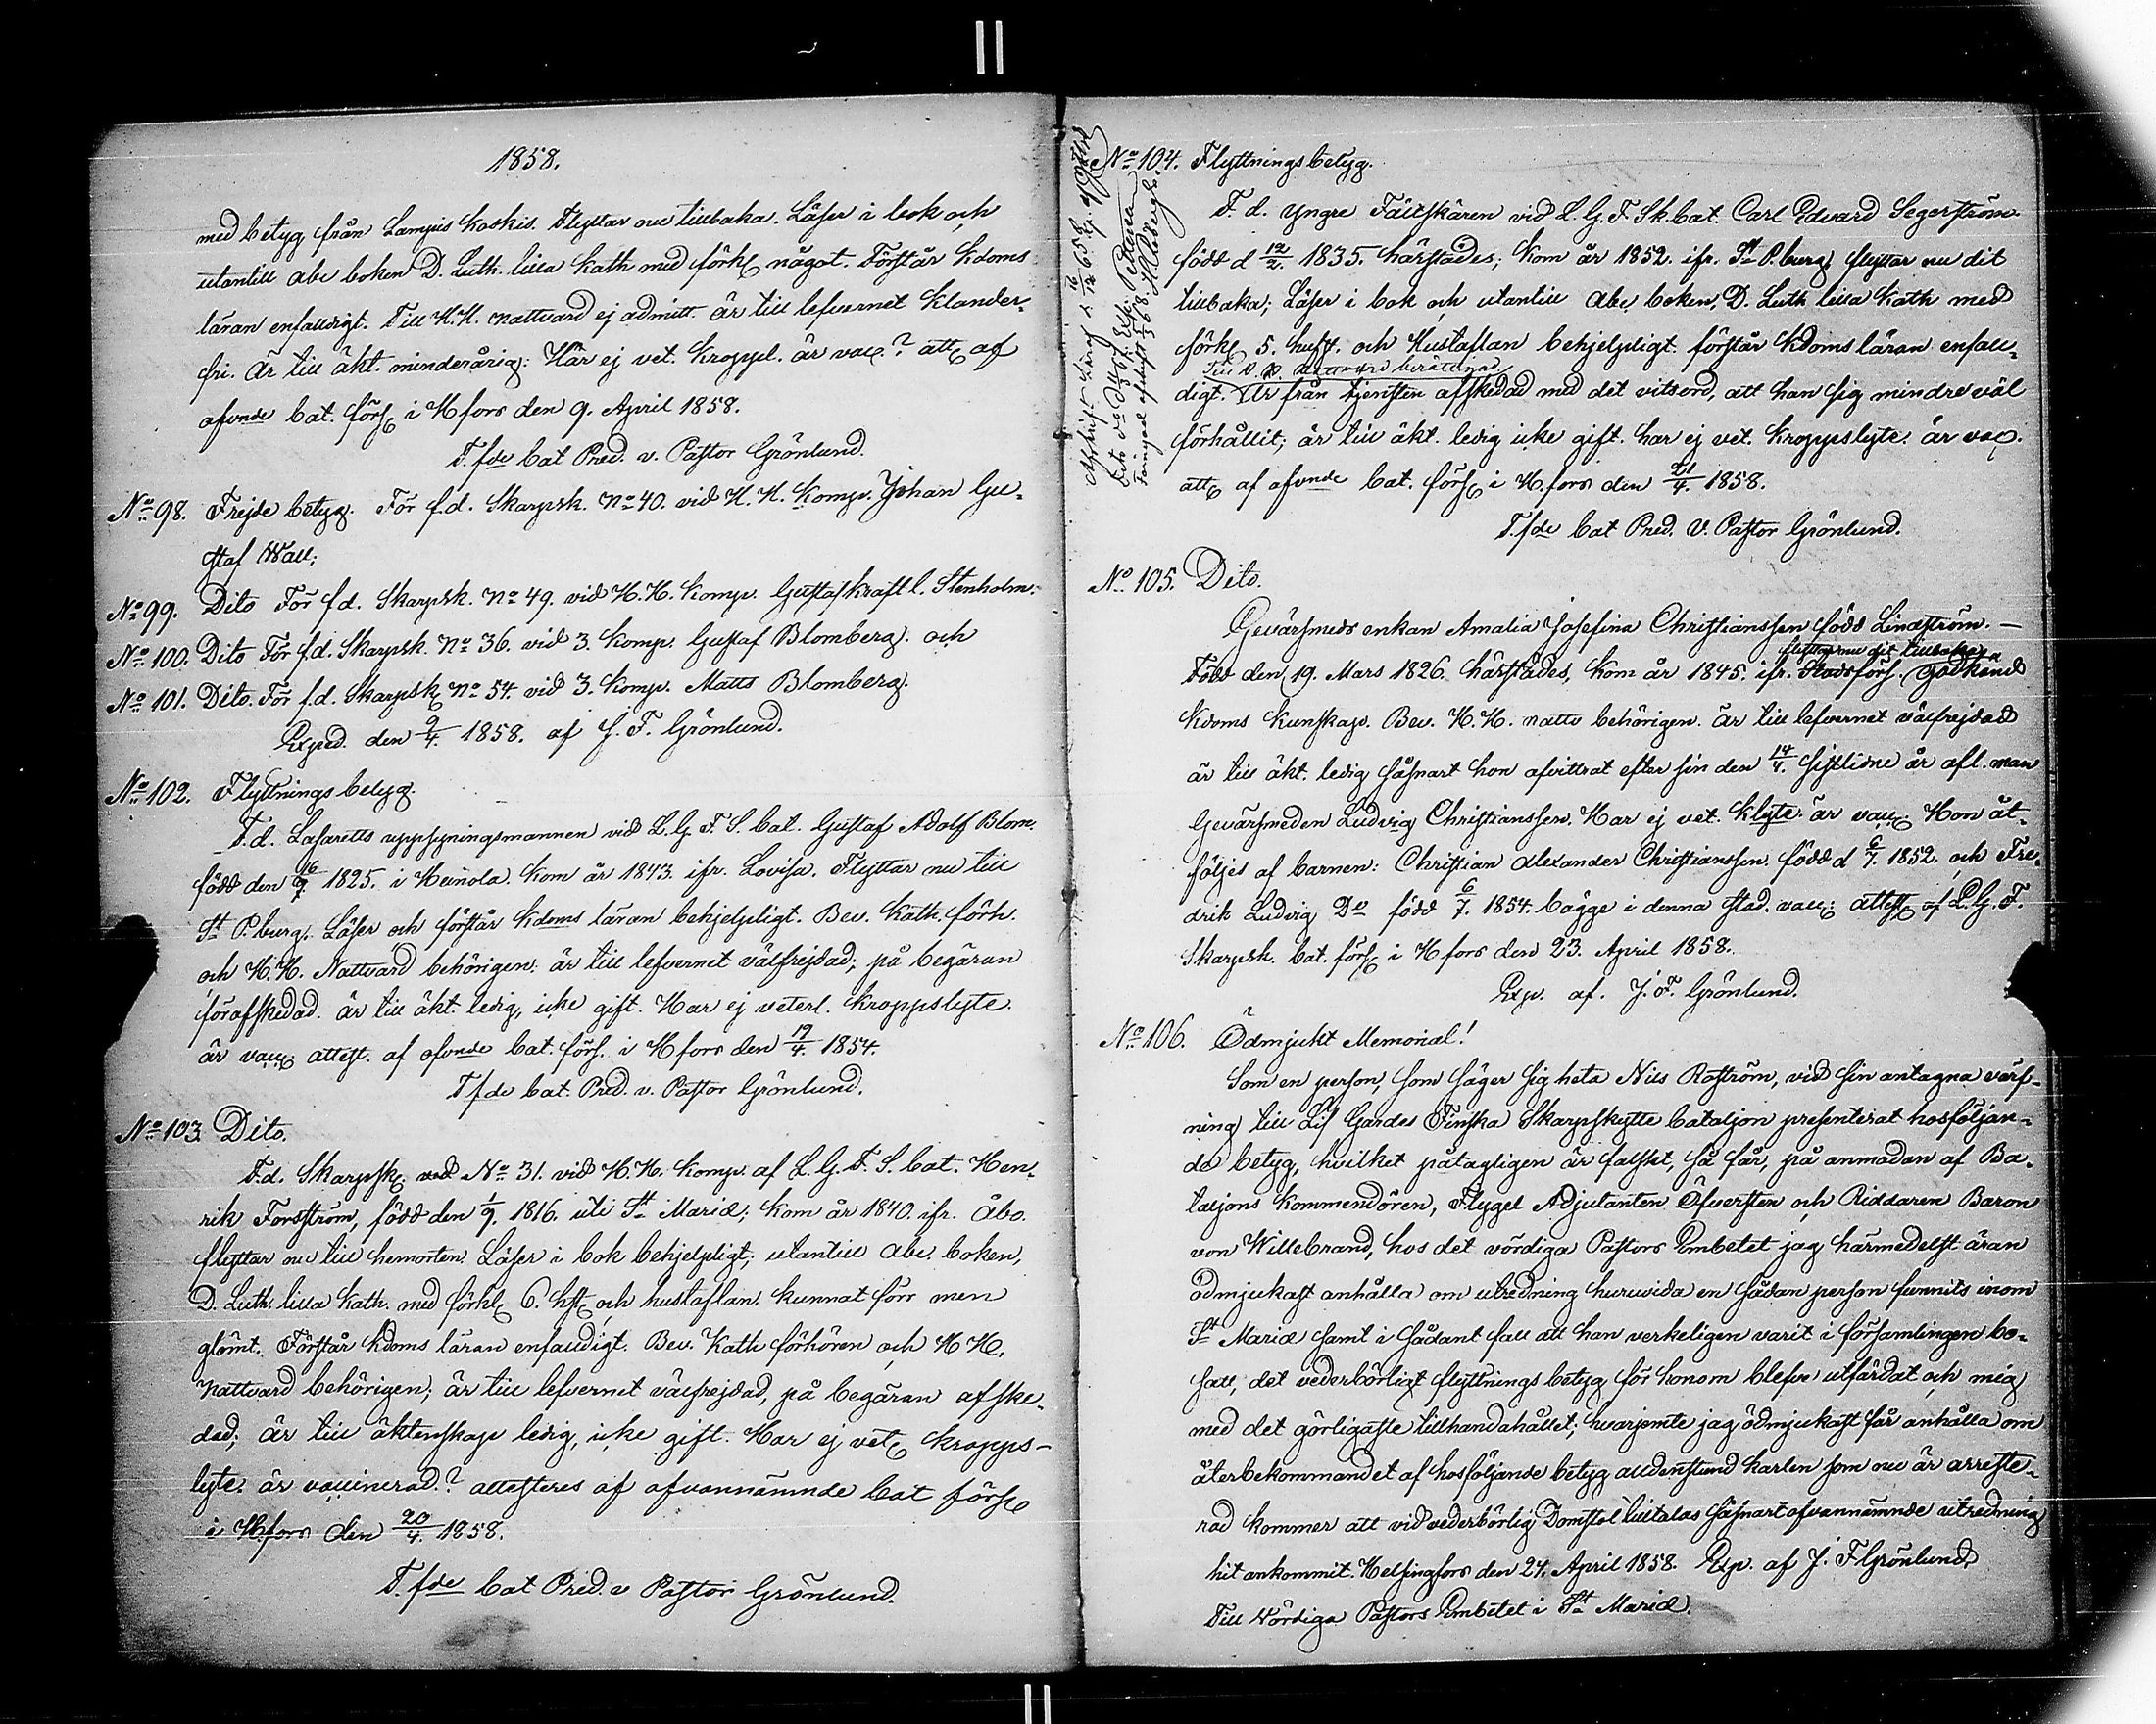 1858.
med betyg från Lampis Koskis. Flyttar nu tillbaka. Läser i bok och
utantill abc boken D. Luth. lilla Kath med förkl något. Förstår Kdoms
läran enfalldigt. Till H.H. nattvard ej admitt. är till lefvernet klander-
fri. Är till äkt. minderårig: Har ej vet. kroppsl. är vac.? att af
ofvnde bat. förs i H fors den 9. April 1858.
T.fde bat Pred. v. Pastor Grönlund.
No 98. Frejde betyg. För f.d. Skarpsk. No 40. vid H.H. Komp. Johan Gu-
staf Wall;
No 99. Dito För fd. Skarpsk. No 49. vid H.H. Komp. Gustaf Kraft l. Stenholm.
No 100. Dito För f.d. Skarpsk. No 36. vid 3. Komp. Gustaf Blomberg. och
No 101. Dito. För f.d. Skarpsk No 54. vid 3. Komp. Matts Blomberg.
Exped. den 9/4. 1858. af J. F. Grönlund.
No 102. Flyttnings betyg.
F.d. Lasaretts uppsyningsmannen vid L.G. F. S. bat. Gustaf Adolf Blom.
född den 16/9. 1825. i Heinola. Kom år 1843. ifr. Lovisa. Flyttar nu till
St P.burg. Läser och förstår Kdoms läran behjelpligt. Bev. Kath. förh.
och H.H. Nattvard behörigen: är till lefvernet välfrejdad; på begäran
för afskedad. är till äkt. ledig, icke gift. Har ej veterl. kroppslyte.
är vacc. attest. af ofvnde bat. förs. i H fors den 19/4. 1854.
T fde bat. Pred. v. Pastor Grönlund.
No 103. Dito.
F.d. Skarpsk. No 31. vid H.H. Komp. af L. G. F. S. bat. Hen-
rik Forsström, född den 1/9. 1816. uti St Mariæ; Kom år 1840. ifr. Åbo.
flyttar nu till hemorten. Läser i bok behjelpligt; utantill abc. boken,
D. Luth. lilla Kath. med förkl 6. hft och hustaflan. kunnat förr men
glömt. Förstår Kdoms läran enfalldigt. Bev. Kath förhören och H H.
Nattvard behörigen; är till lefvernet välfrejdad, på begäran afske-
dad; är till äktenskap ledig, icke gift. Har ej vet kropps-
lyte. är vaccinerad.? attesteres af ofvannämnde bat förs
i H.fors den 20/4. 1858.
T.fde bat Pred. v Pastor Grönlund.
No 104. Flyttnings betyg.
F. d. yngre Fältskären vid L. G. F. Sk. bat. Carl Edvard Segerström
född d 12/2. 1835. härstädes; Kom år 1852. ifr. St P.burg. flyttar nu dit
tillbaka; Läser i bok och utantill abc boken, D. Luth lilla Kath med
förkl 5. hufst. och Hustaflan behjelpligt. förstår Kdoms läran enfall-
Till nattvard berättigad
digt. Är från tjensten afskedad med det vitsord, att han sig mindre väl
förhållit; är till äkt. ledig icke gift. har ej vet. kroppslyte. är vac.
att af ofvnde bat. förs i H.fors den 21/4. 1858.
T.fde bat Pred. V. Pastor Grönlund.
No 105. Dito.
Gevärsmeds enkan Amalia Josefina Christianssen född Lindström. —
flyttar nu dit tillbaka
Född den 19. Mars 1826. härstädes, Kom år 1845. ifr. Stadsförs. godkänd
Kdoms kunskap. Bev. H.H. nattv behörigen. är till lefvernet välfrejdad
är till äkt. ledig såsnart hon afvittrat efter sin den 14/4. sistlidne år afl. man
Gevärsmeden Ludvig Christianssen. Har ej vet. klyte. är vacc. Hon åt-
följes af barnen: Christian Alexander Christianssen född d 6/7. 1852, och Fre-
drik Ludvig Do född 6/7. 1854. bägge i denna stad. vacc: attest af L. G. F.
Skarpsk. bat. förs i H fors den 23. April 1858.
Exp. af. J. F. Grönlund.
No 106. Ödmjukt Memorial!
Som en person, som säger sig heta Nils Roström, vid sin antagna värf-
ning till Lif Gardes Finska Skarpskytte bataljon presenterat hosföljan-
de betyg, hvilket påtagligen är falskt, så får, på anmodan af Ba-
taljons Kommendören, Flygel Adjutanten Öfversten och Riddaren Baron
von Willebrand, hos det vördiga Pastors Embetet jag härmedelst äran
ödmjukast anhålla om utredning huruvida en sådan person funnits inom
St Mariæ samt i sådant fall att han verkeligen varit i församlingen bo-
satt, det vederbörligt flyttnings betyg för honom blefve utfärdat och mig
med det görligaste tillhandahållet; hvarjemte jag ödmjukast får anhålla om
återbekommandet af hosföljande betyg alldenstund karlen som nu är arreste-
rad kommer att vid vederbörlig Domstol tilltalas såsnart ofvannämnde utredning
hit ankommit. Helsingfors den 24. April 1858. Exp. af J. F Grönlund.
Till Vördiga Pastors Embetet i St Mariæ.